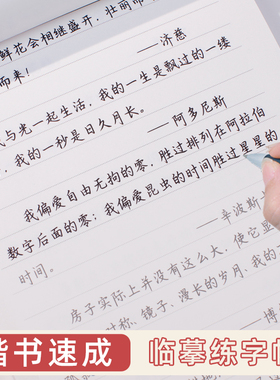 鲜花会相继盛开，壮丽
而来！
——济慈
与光一起生活，我的一生是飘过的一缕
，我的一秒是日久月长。
——阿多尼斯
我偏爱自由无拘的零，胜过排列在阿拉伯
数字后面的零；我偏爱昆虫的时间胜过星星的
时间。
——辛波斯
房子实际上并没有这么大，使它显
对称、镜子、漫长的岁月，我的
——博
楷书速成
临摹练字帖